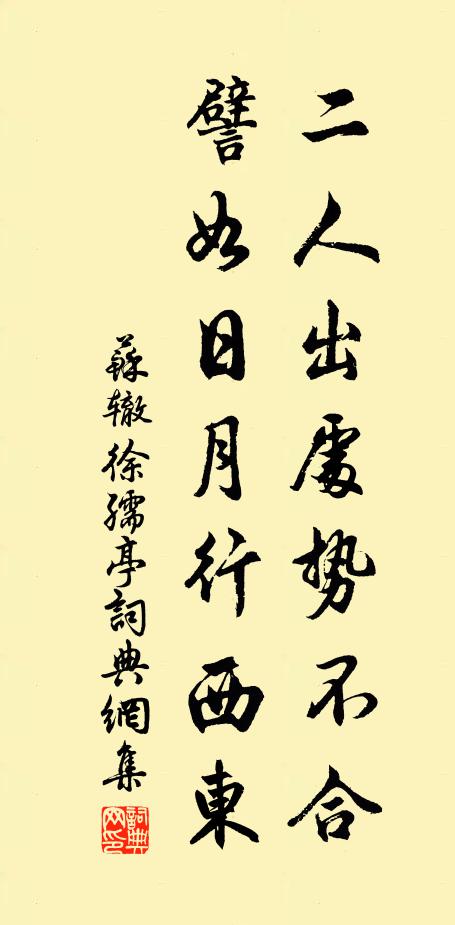 二人出處勢不合
譬如日月行西東
蘇辙徐孺亭詞典網集
詞典網印